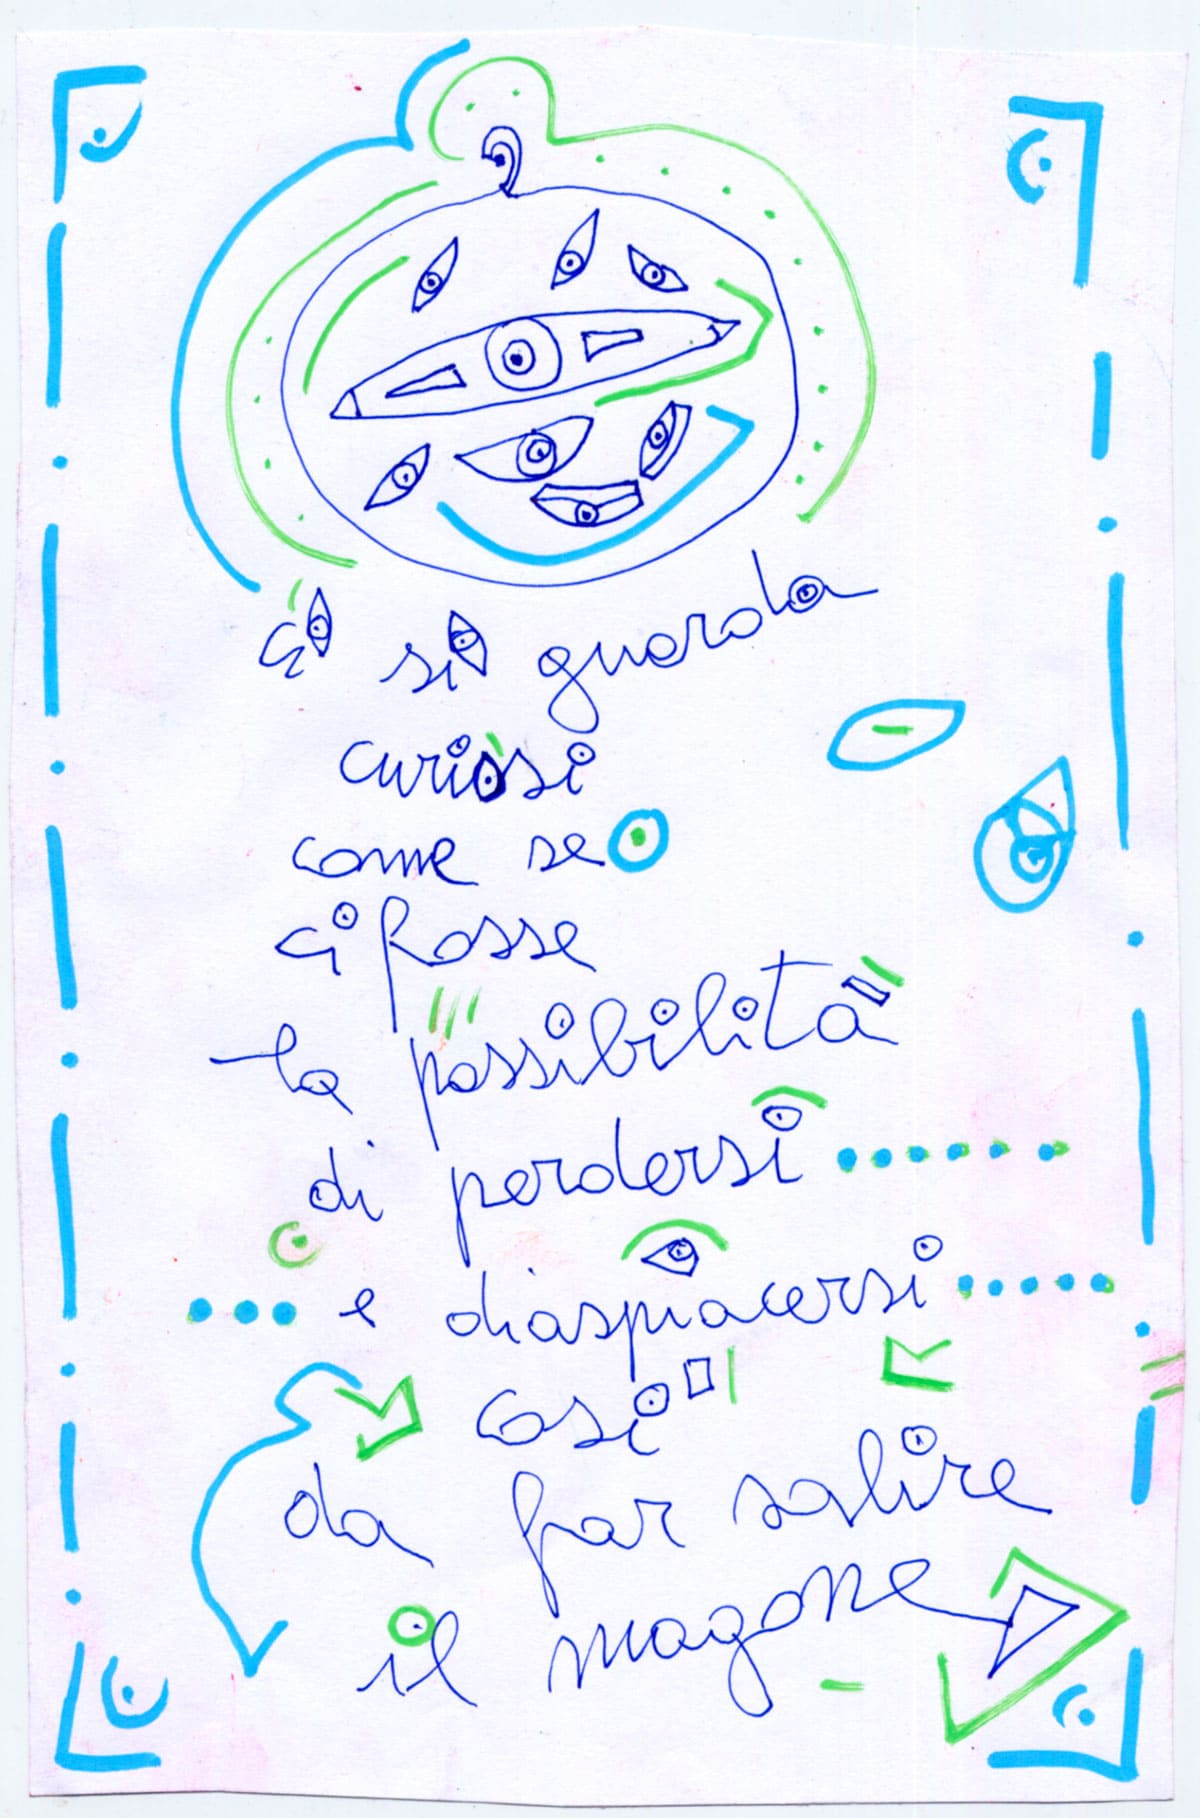 ci si guarda
curiosi
come se
ci fosse
la possibilità
di perdersi
e diaspiacersi
così
da far salire
il magone